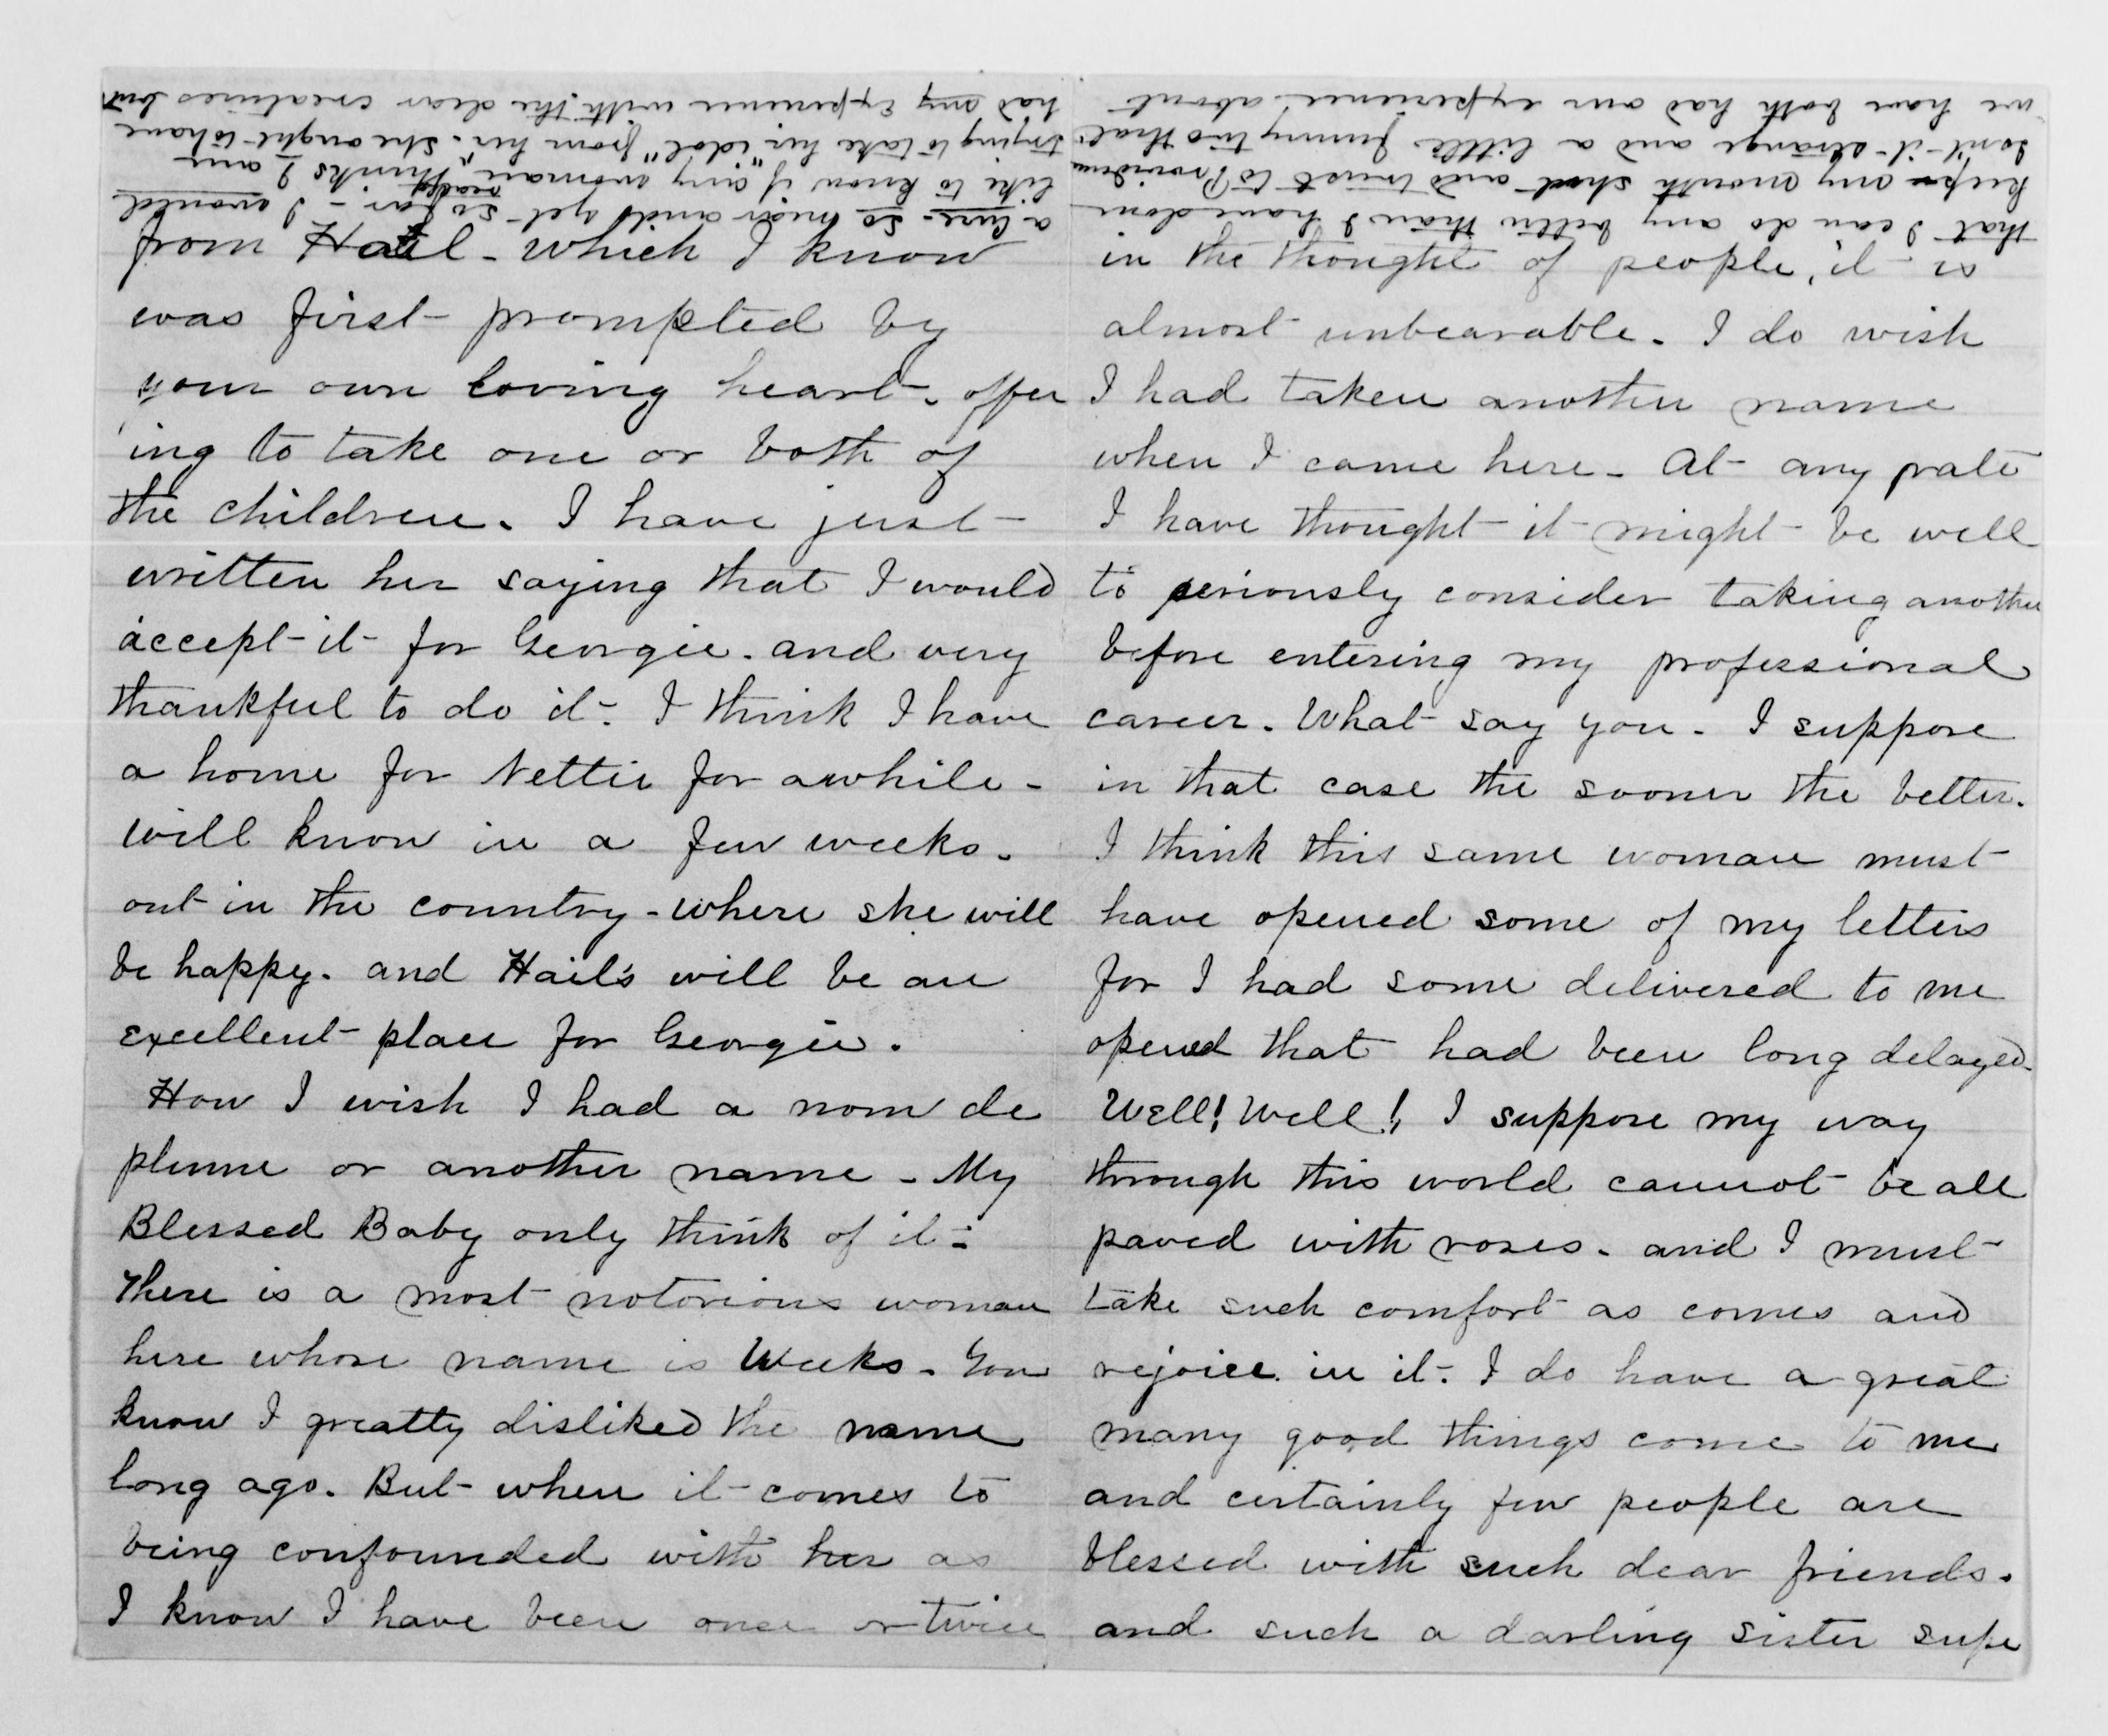 from Hail - which I know
was first prompted by
your own loving heart - offer
ing to take one or both of
the children. I have just
written her saying that I would
accept it for Georgie. and very
thankful to do it. I think I have
a home for Nettie for awhile -
will know in a few weeks.
out in the country - where she will
be happy. and Hail's will be an
excellent place for Georgie.
How I wish I had a nom de
plume or another name - My
Blessed Baby only think of it -
There is a most notorious woman
here whose name is Weeks - You
know I greatly disliked the name
long ago. But when it comes to
being confounded with her as
I know I have been once or twice
in the thought of people, it is
almost unbearable. I do wish
I had taken another name
when I came here - At any rate
I have thought it might be well
to seriously consider taking another
before entering my professional
career. What say you. I suppose
in that case the sooner the better.
I think this same woman must
have opened some of my letters
for I had some delivered to me
opened that had been long delayed.
Well! Well! I suppose my way
through this world cannot be all
paved with roses. and I must
take such comfort as comes and
rejoice in it. I do have a great
many good things come to me
and certainly few people are
blessed with such dear friends.
and such a darling sister supe
that I can do any better than I have done
keep my mouth shut and trust to Providence
isn't it strange and a little funny too that
we have both had our experience about
a lure - so near and yet so far - I would
like to know if any woman really "thinks" I am
trying to take her "idol" from her. She ought to have
had any experience with the dear creatures but